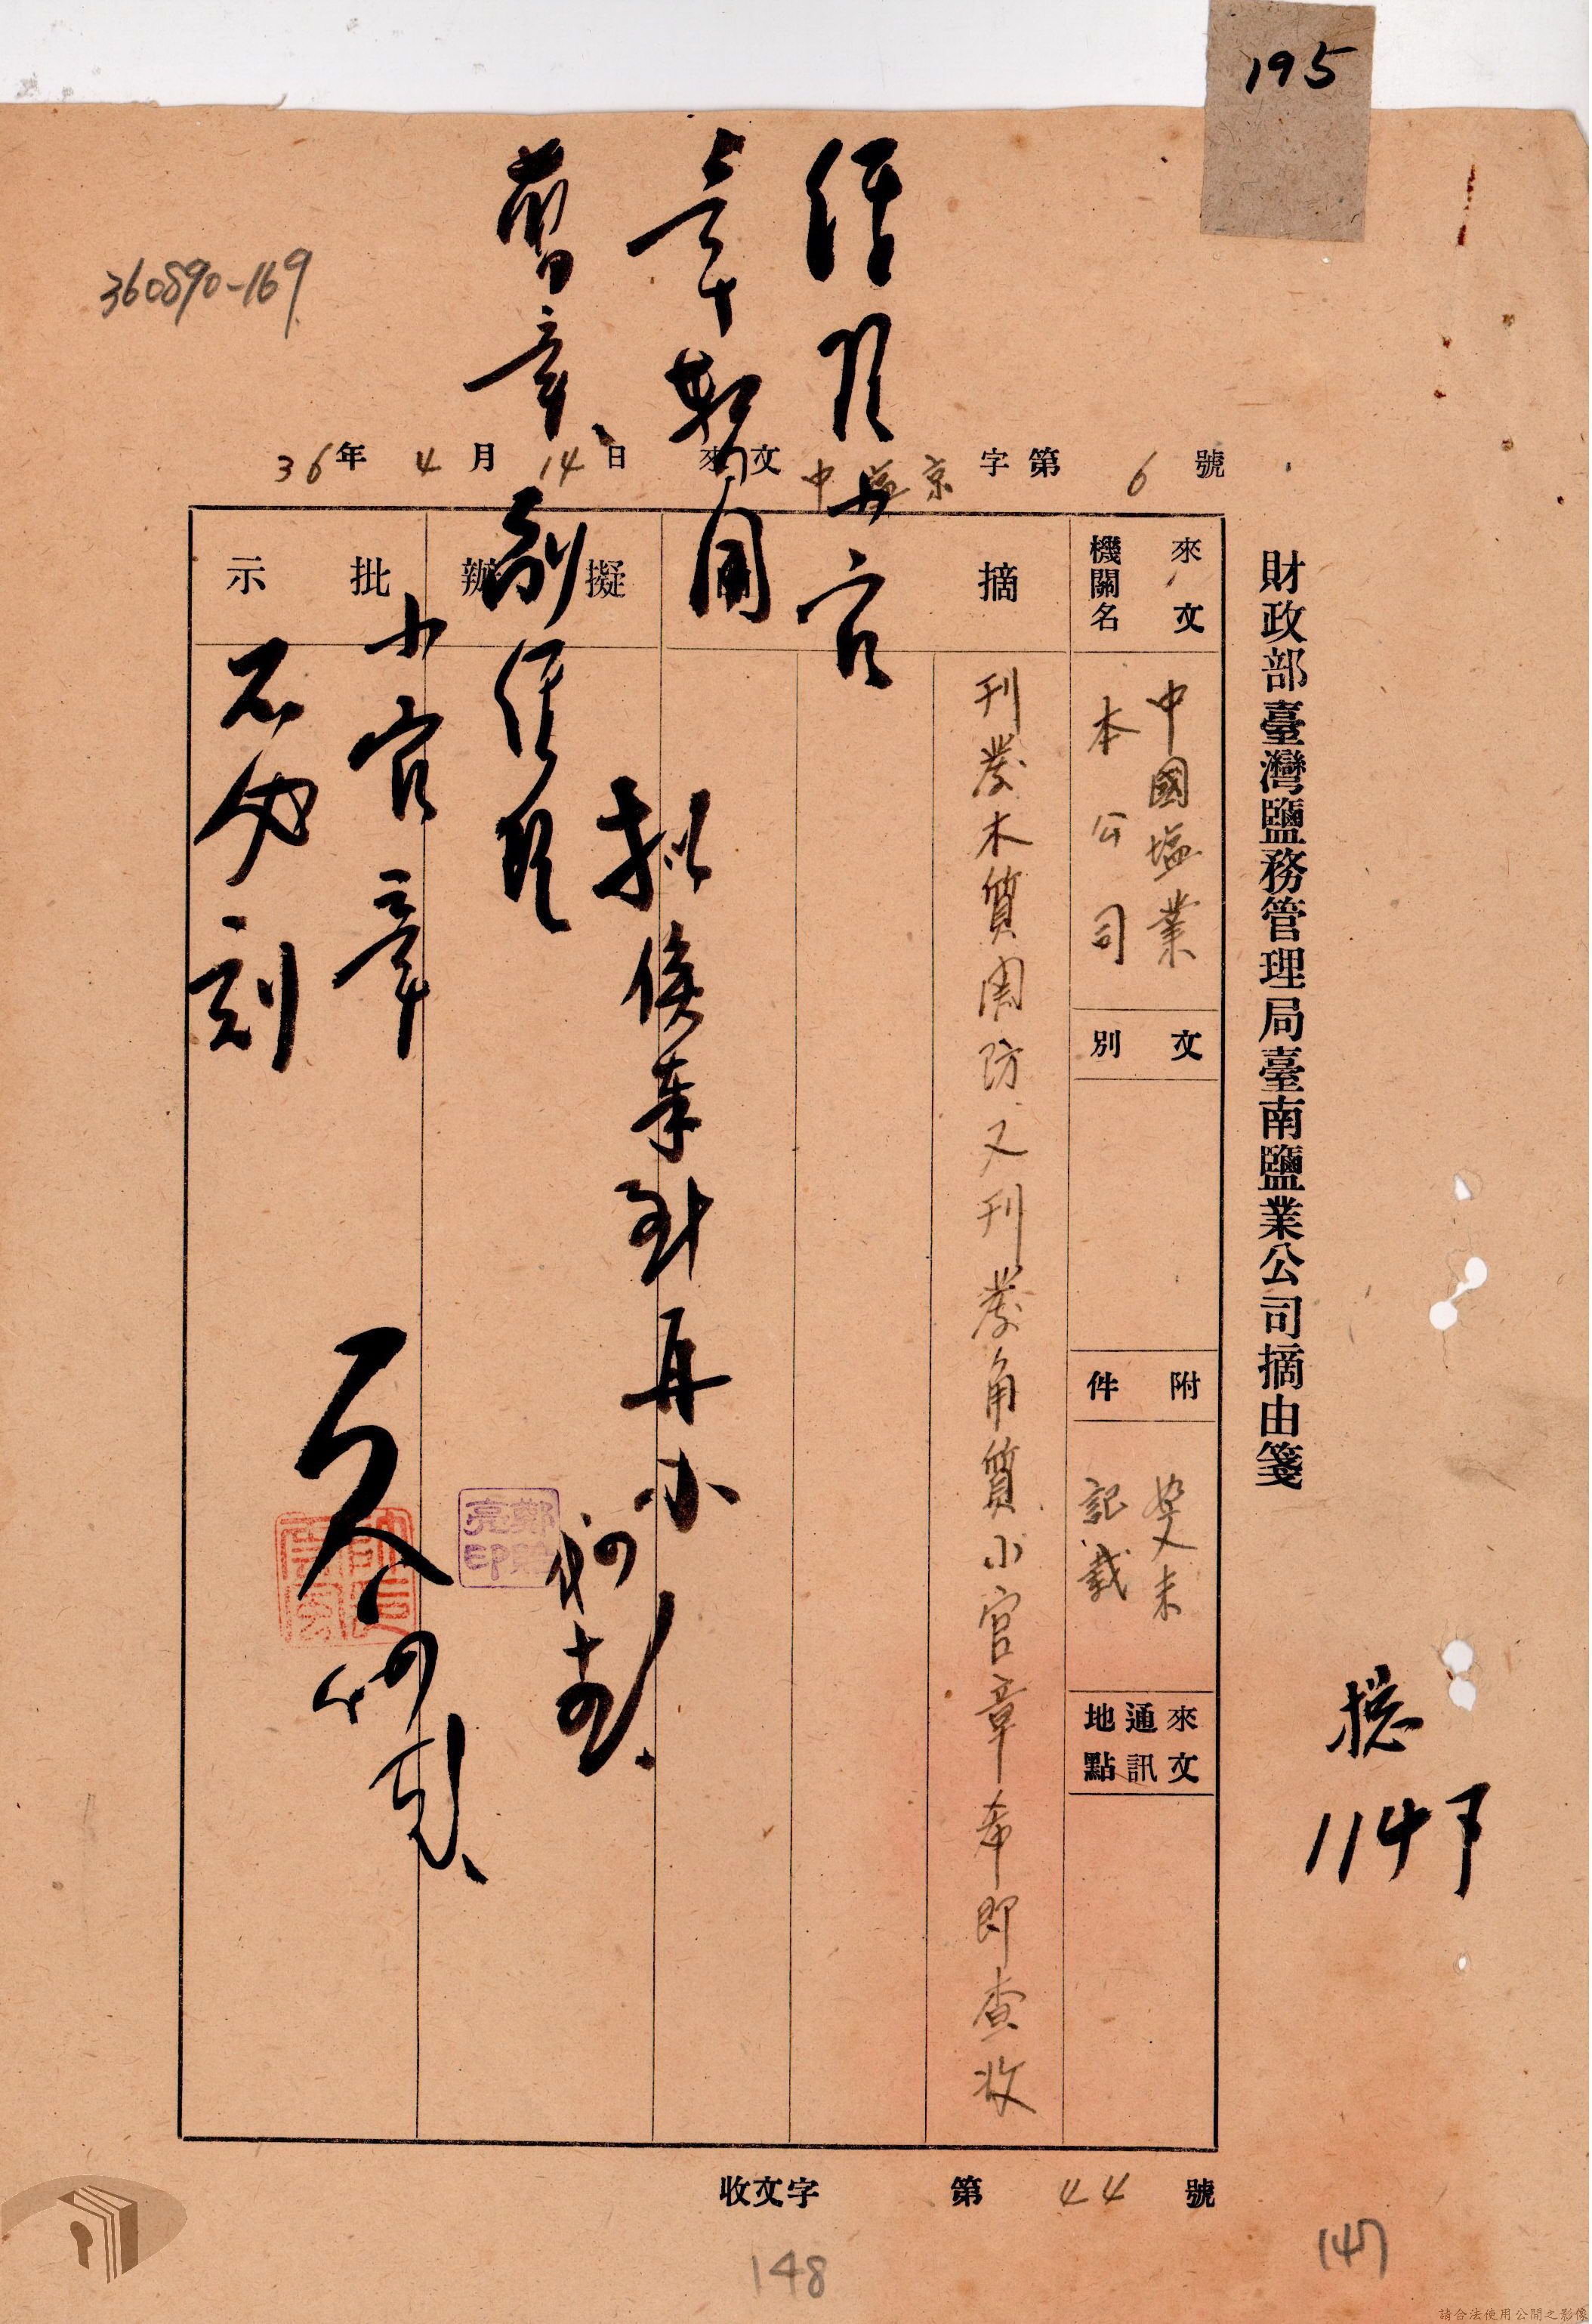 195
360890-169
36年4月14日 來文 中塩京字第6號
財政部臺灣鹽務管理局臺南鹽業公司摘由箋
來文機關名
中國塩業
本公司
文別
附件
文未
記載
來文通訊地點
摘
刊發木質関防又刊發角質小官章希即查收
擬辦
批示
經理小官
章暫用
舊章、
副經理
小官章
不必刻
擬俟奉到再办
總
114
收文字第44號
148
147
請合法使用公開之影像